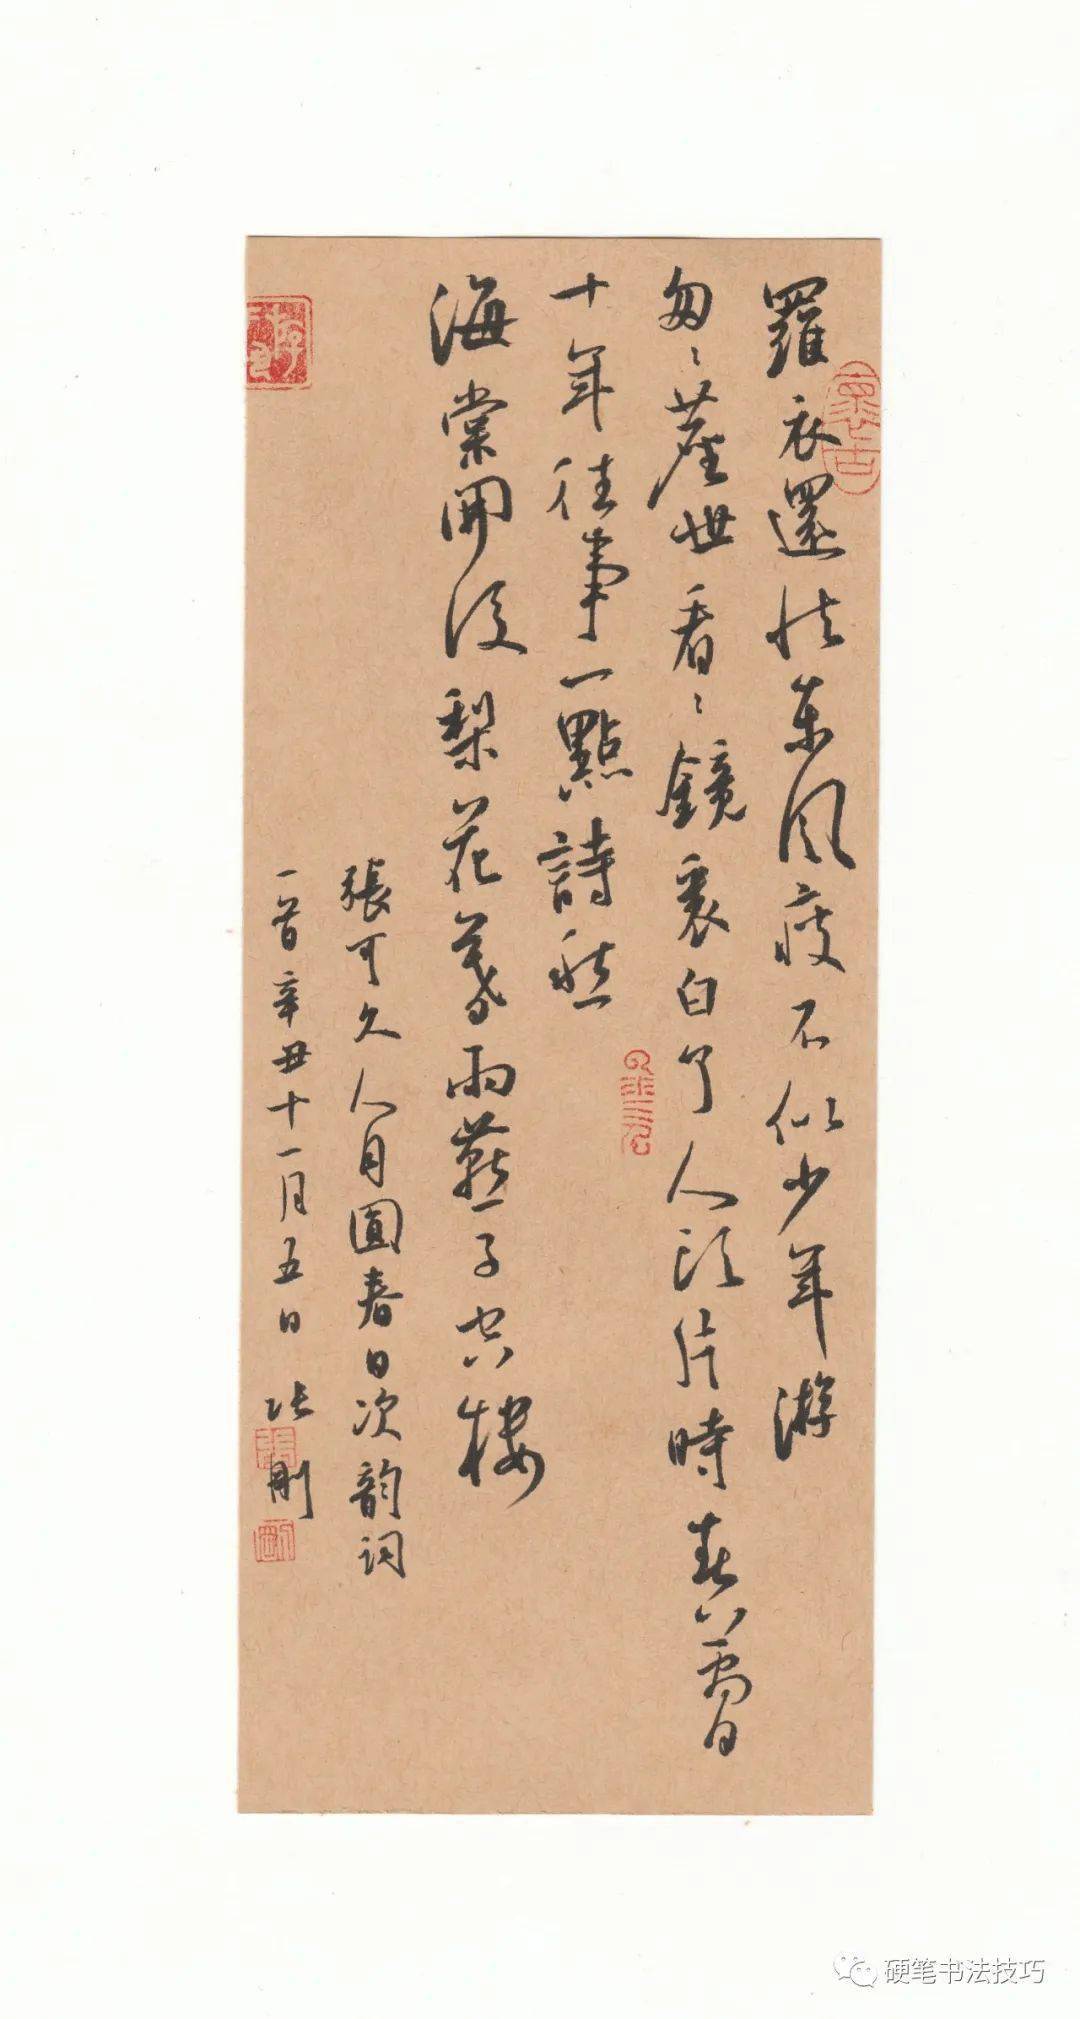 羅衣還怯東風瘦不似少年游
匆〻塵世看〻鏡裏白了人頭片時春夢
十年往事一點詩愁
海棠開後梨花暮雨燕子空樓
張可久人月圓春日次韵詞
一首辛丑十一月五日 張剛
硬笔书法技巧